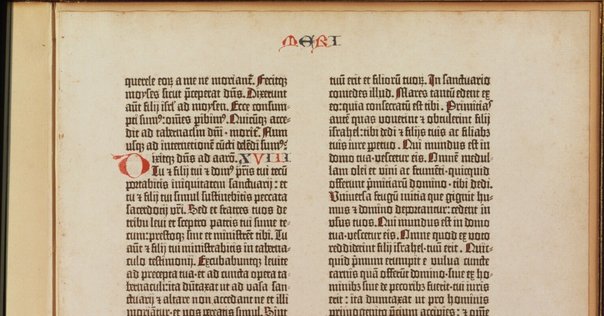 MERI
querele eoꝝ a me ne moriant̃. Fecitqꝫ
moyses sicut p̃ceperat dñs. Dixerunt
aũt filij isrl̃ ad moysen. Ecce consum-
pti sum⁹: om̃es ꝑibim⁹. Quicũqꝫ acce-
dit ad tabernaclm̃ dñi · morit̃. Num
usqꝫ ad internetionẽ cũcti delẽdi sum⁹?
Dixitqꝫ dñs ad aarõ. XVIII
Tu ⁊ filij tui ⁊ dom⁹ pr̃is tui tecũ
portabitis iniquitatem sanctuarij: et
tu ⁊ filij tui simul sustinebitis peccata
sacerdotij vr̃i. Sed et fratres tuos de
tribu leui et sceptro patris tui sume te-
cum: prestoqꝫ sint et ministrẽt tibi. Tu
aũt ⁊ filij tui ministrabitis in taberna-
culo testimonij. Excubabuntqꝫ leuite
ad precepta tua · et ad cuncta opera ta-
bernaculi: ita dũtaxat ut ad vasa san-
ctuarij ⁊ altare non accedant · ne et illi
moriãtur · et vos pereatis simul. Sint
tuũ erit et filiorũ tuoꝝ. In sanctuario
comedes illud. Mares tantũ edent ex
eo: quia consecratũ est tibi. Primitias
autẽ quas vouerint ⁊ obtulerint filij
israhel: tibi dedi ⁊ filijs tuis ac filiabꝫ
tuis iure ꝑpetuo. Qui mundus est in
domo tua · vescetur eis. Omnẽ medul-
lam olei et vini ac frumẽti · quicquid
offerunt p̃mitiarũ domino · tibi dedi.
Vniuersa frugũ initia que gignit hu-
mus ⁊ domino deportantur: cedent in
usus tuos. Qui mundus est in domo
tua · vescetur eis. Omne quod ex voto
reddiderint filij israhel · tuũ erit. Quic-
quid p̃mum erumpit e vulua cuncte
carnis quã offerũt domino · siue ex ho-
minibꝫ siue de pecoribꝫ fuerit · tui iuris
erit: ita dumtaxat ut pro hominis
primogenito p̃cium accipies: ⁊ om̃e